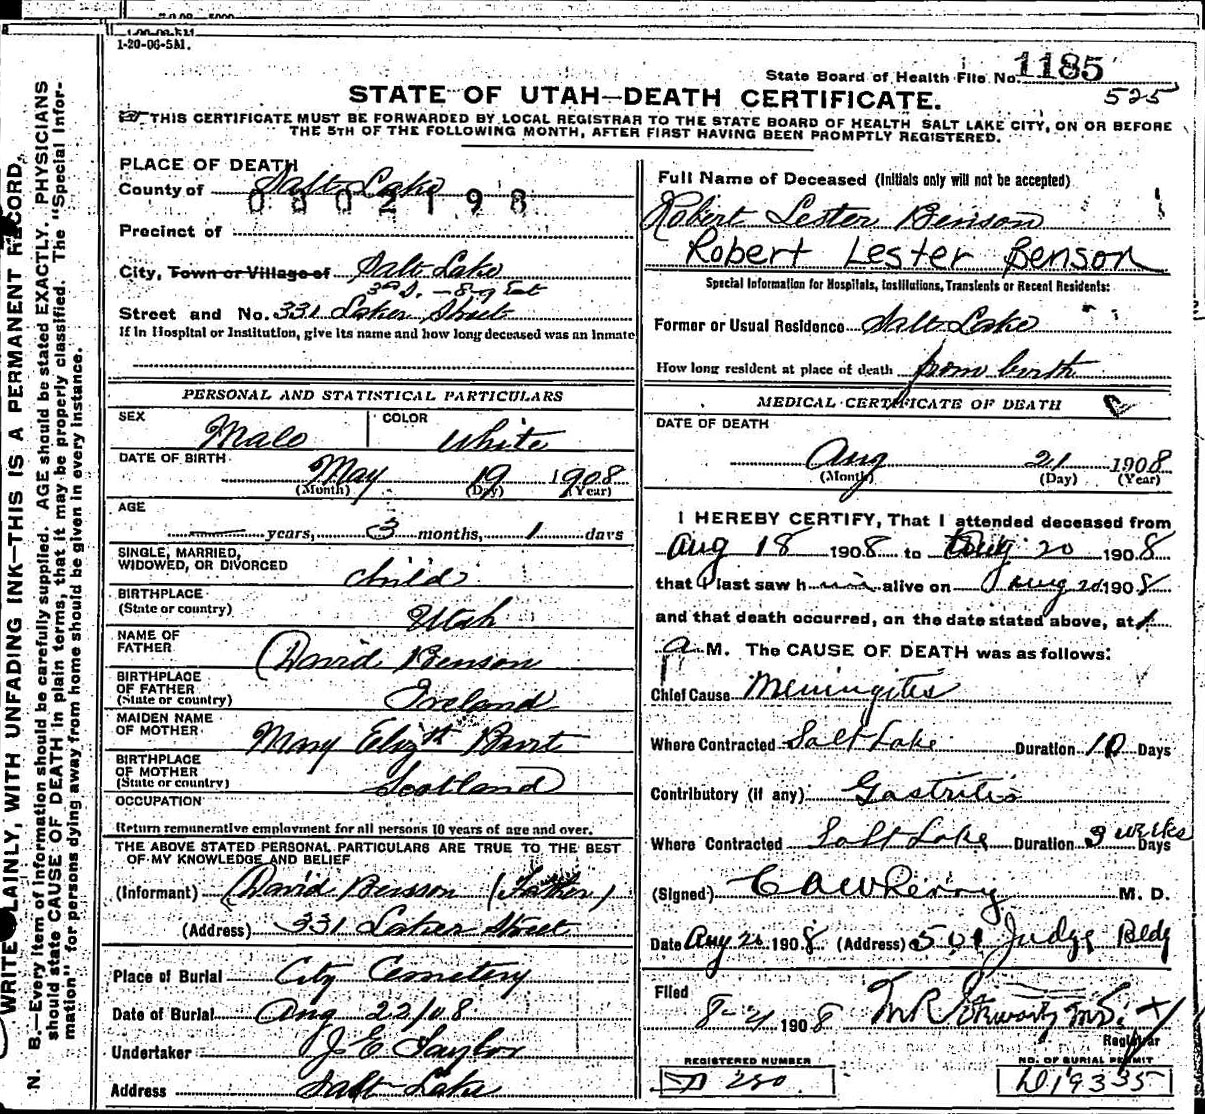 1-20-06-5M.
State Board of Health File No. 1185
525
STATE OF UTAH—DEATH CERTIFICATE.
THIS CERTIFICATE MUST BE FORWARDED BY LOCAL REGISTRAR TO THE STATE BOARD OF HEALTH SALT LAKE CITY, ON OR BEFORE
THE 5TH OF THE FOLLOWING MONTH, AFTER FIRST HAVING BEEN PROMPTLY REGISTERED.
WRITE PLAINLY, WITH UNFADING INK—THIS IS A PERMANENT RECORD.
N. B.—Every item of information should be carefully supplied. AGE should be stated EXACTLY. PHYSICIANS
should state CAUSE OF DEATH in plain terms, that it may be properly classified. The "Special Infor-
mation" for persons dying away from home should be given in every instance.
PLACE OF DEATH
County of Salt Lake
0002198
Precinct of
City, Town or Village of Salt Lake
3rd S. - 8-9 East
Street and No. 331 Street
If in Hospital or Institution, give its name and how long deceased was an Inmate
PERSONAL AND STATISTICAL PARTICULARS
SEX Male COLOR White
DATE OF BIRTH
May 19 1908
(Month) (Day) (Year)
AGE
— years, 3 months, 1 days
SINGLE, MARRIED,
WIDOWED, OR DIVORCED child
BIRTHPLACE
(State or country) Utah
NAME OF
FATHER David Benson
BIRTHPLACE
OF FATHER
(State or country) Ireland
MAIDEN NAME
OF MOTHER Mary Elizth Burt
BIRTHPLACE
OF MOTHER
(State or country) Scotland
OCCUPATION
Return remunerative employment for all persons 10 years of age and over.
THE ABOVE STATED PERSONAL PARTICULARS ARE TRUE TO THE BEST
OF MY KNOWLEDGE AND BELIEF
(Informant) David Benson (Father)
(Address) 331 Street
Place of Burial City Cemetery
Date of Burial Aug 22/08
Undertaker J E Taylor
Address Salt Lake
Full Name of Deceased (Initials only will not be accepted)
Robert Lester Benson
Robert Lester Benson
Special Information for Hospitals, Institutions, Transients or Recent Residents:
Former or Usual Residence Salt Lake
How long resident at place of death from birth
MEDICAL CERTIFICATE OF DEATH
DATE OF DEATH
Aug 21 1908
(Month) (Day) (Year)
I HEREBY CERTIFY, That I attended deceased from
Aug 18 1908 to Aug 20 1908
that I last saw him alive on Aug 20 1908
and that death occurred, on the date stated above, at 1
a M. The CAUSE OF DEATH was as follows:
Chief Cause Meningites
Where Contracted Salt Lake Duration 10 Days
Contributory (if any) Gastritis
Where Contracted Salt Lake Duration 3 weeks Days
(Signed) M. D.
Date Aug 20 1908 (Address) 501 Judge Bldg
Filed
8-21 1908
Registrar
REGISTERED NUMBER
D 250
NO. OF BURIAL PERMIT
D19335